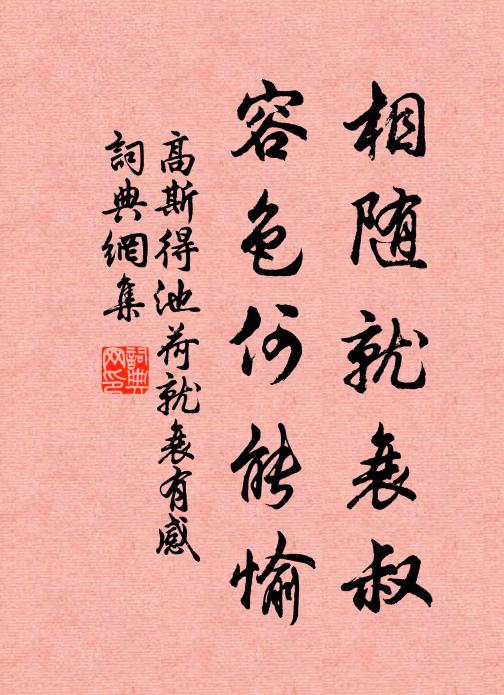 相随就衰叔
容色何能愉
高斯得池荷就衰有感
詞典網集
詞典網印